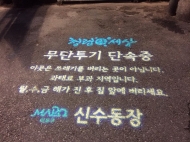 청렴 세상
무단투기 단속중
이곳은 쓰레기를 버리는 곳이 아닙니다.
과태료 부과 지역입니다.
월,수,금 해가 진 후 집 앞에 버리세요.
신수동장